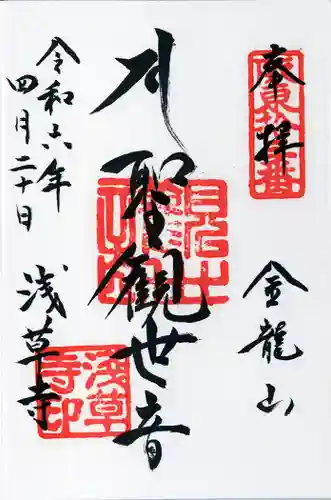 奉拝
金龍山
聖観世音
浅草寺
令和六年
四月二十日
坂東拾三番
浅草寺印